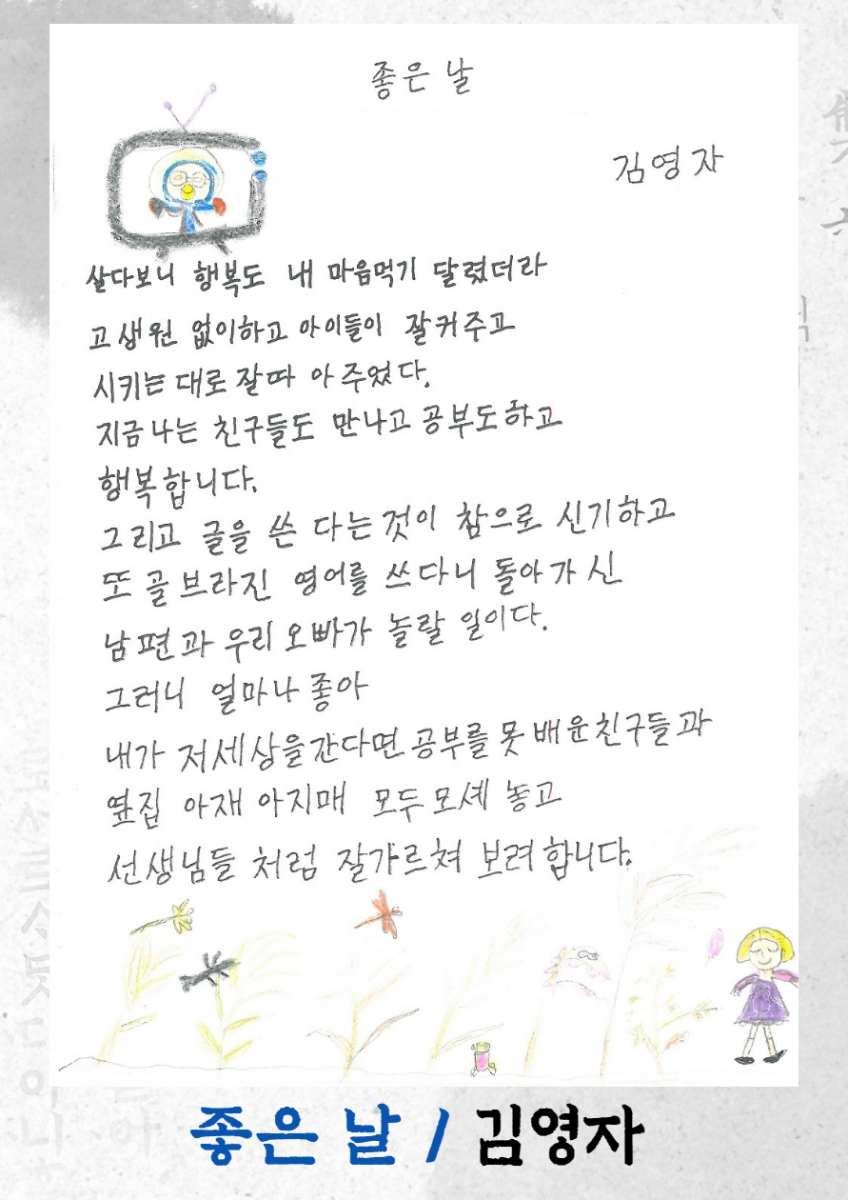 좋은 날
김영자
살다보니 행복도 내 마음먹기 달렸더라
고생원 없이하고 아이들이 잘커주고
시키는 대로 잘따 아 주었다.
지금 나는 친구들도 만나고 공부도하고
행복합니다.
그리고 글을 쓴 다는것이 참으로 신기하고
또 골 브라진 영어를 쓰다니 돌아가 신
남편과 우리오빠가 놀랄 일이다.
그러니 얼마나 좋아
내가 저세상을간다면 공부를못 배운친구들과
옆집 아재 아지매 모두모셰 놓고
선생님들 처럼 잘가르쳐 보려합니다.
좋은 날 / 김영자